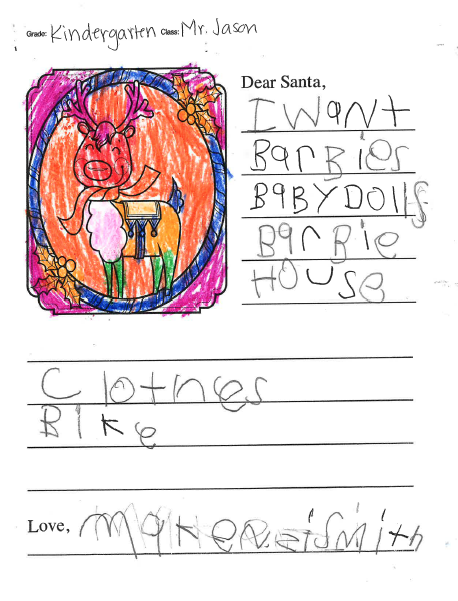 Grade: Kindergarten Class: Mr. Jason
Dear Santa,
I Want
BarBies
BaBYDOlls
BarBie
HOUse
Clothes
BIke
Love, smith